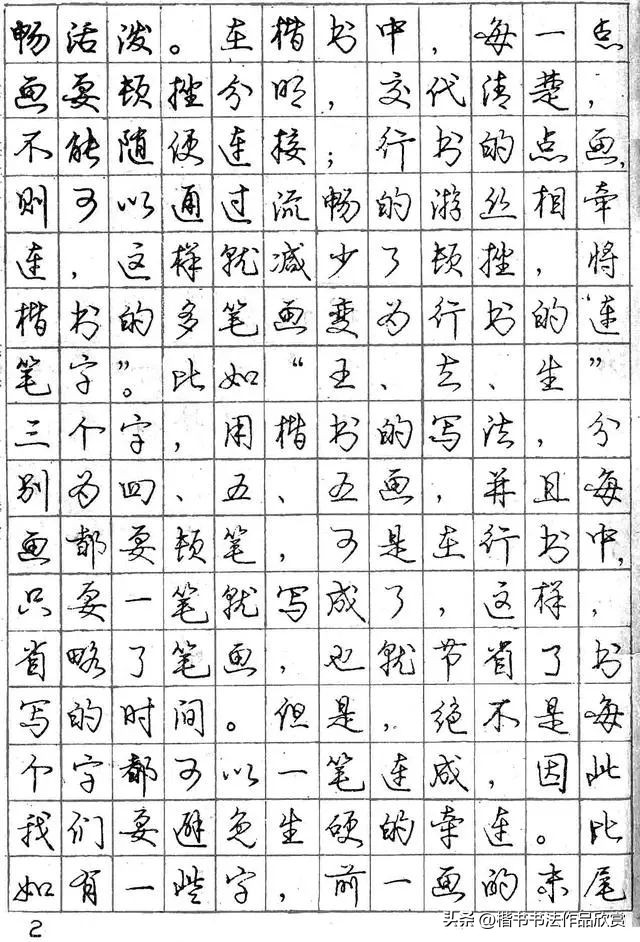 畅活泼。在楷书中，每一点
画要顿挫分明，交代清楚，
不能随便连接；行书的点画，
则可以通过流畅的游丝相牵
连，这样就减少了顿挫，将
楷书的多笔画变为行书的“连
笔字”。比如“王、去、生”
三个字，用楷书的写法，分
别为四、五、五画，并且每
画都要顿笔，可是在行书中，
只要一笔就写成了，这样，
省略了笔画，也就节省了书
写的时间。但是，绝不是每
个字都可以一笔连成，因此
我们要避免生硬的牵连。比
如有一些字，前一画的末尾
2
头条@楷书书法作品欣赏